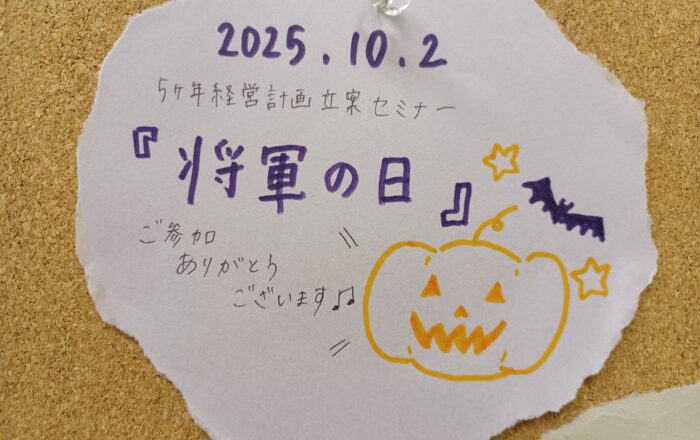 2025.10.2
5ヶ年経営計画立案セミナー
『将軍の日』
ご参加
ありがとう
ございます♫